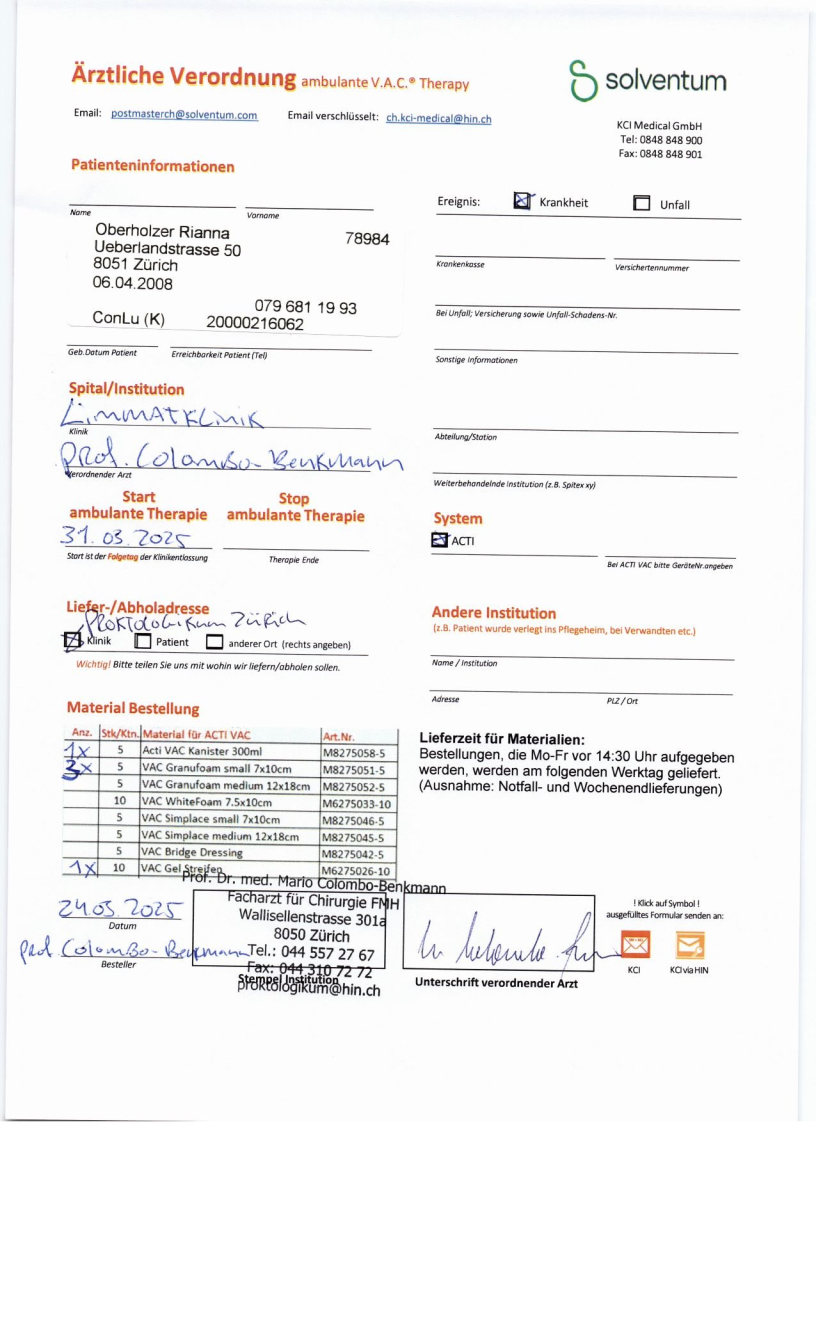 Ärztliche Verordnung ambulante V.A.C.® Therapy
solventum
Email: postmasterch@solventum.com Email verschlüsselt: ch.kci-medical@hin.ch
KCI Medical GmbH
Tel: 0848 848 900
Fax: 0848 848 901
Patienteninformationen
Name Vorname
Oberholzer Rianna 78984
Ueberlandstrasse 50
8051 Zürich
06.04.2008
079 681 19 93
ConLu (K) 20000216062
Geb.Datum Patient Erreichbarkeit Patient (Tel)
Ereignis: Krankheit Unfall
Krankenkasse Versichertennummer
Bei Unfall; Versicherung sowie Unfall-Schadens-Nr.
Sonstige Informationen
Spital/Institution
LimmatKlinik
Klinik
Prof. Colombo-Benkmann
Verordnender Arzt
Abteilung/Station
Weiterbehandelnde Institution (z.B. Spitex xy)
Start ambulante Therapie
Stop ambulante Therapie
31.03.2025
Start ist der Folgetag der Klinikentlassung Therapie Ende
System
ACTI
Bei ACTI VAC bitte GeräteNr.angeben
Liefer-/Abholadresse
Proktologikum Zürich
Klinik Patient anderer Ort (rechts angeben)
Wichtig! Bitte teilen Sie uns mit wohin wir liefern/abholen sollen.
Andere Institution
(z.B. Patient wurde verlegt ins Pflegeheim, bei Verwandten etc.)
Name / Institution
Adresse PLZ / Ort
Material Bestellung
Anz. Stk/Ktn. Material für ACTI VAC Art.Nr.
1x 5 Acti VAC Kanister 300ml M8275058-5
3x 5 VAC Granufoam small 7x10cm M8275051-5
5 VAC Granufoam medium 12x18cm M8275052-5
10 VAC WhiteFoam 7.5x10cm M6275033-10
5 VAC Simplace small 7x10cm M8275046-5
5 VAC Simplace medium 12x18cm M8275045-5
5 VAC Bridge Dressing M8275042-5
1x 10 VAC Gel Streifen M6275026-10
Lieferzeit für Materialien:
Bestellungen, die Mo-Fr vor 14:30 Uhr aufgegeben
werden, werden am folgenden Werktag geliefert.
(Ausnahme: Notfall- und Wochenendlieferungen)
24.03.2025
Datum
Prof Colombo-Benkmann
Besteller
Prof. Dr. med. Mario Colombo-Benkmann
Facharzt für Chirurgie FMH
Wallisellenstrasse 301a
8050 Zürich
Tel.: 044 557 27 67
Fax: 044 310 72 72
Stempel Institution
proktologikum@hin.ch
Unterschrift verordnender Arzt
! Klick auf Symbol !
ausgefülltes Formular senden an:
KCI KCI via HIN